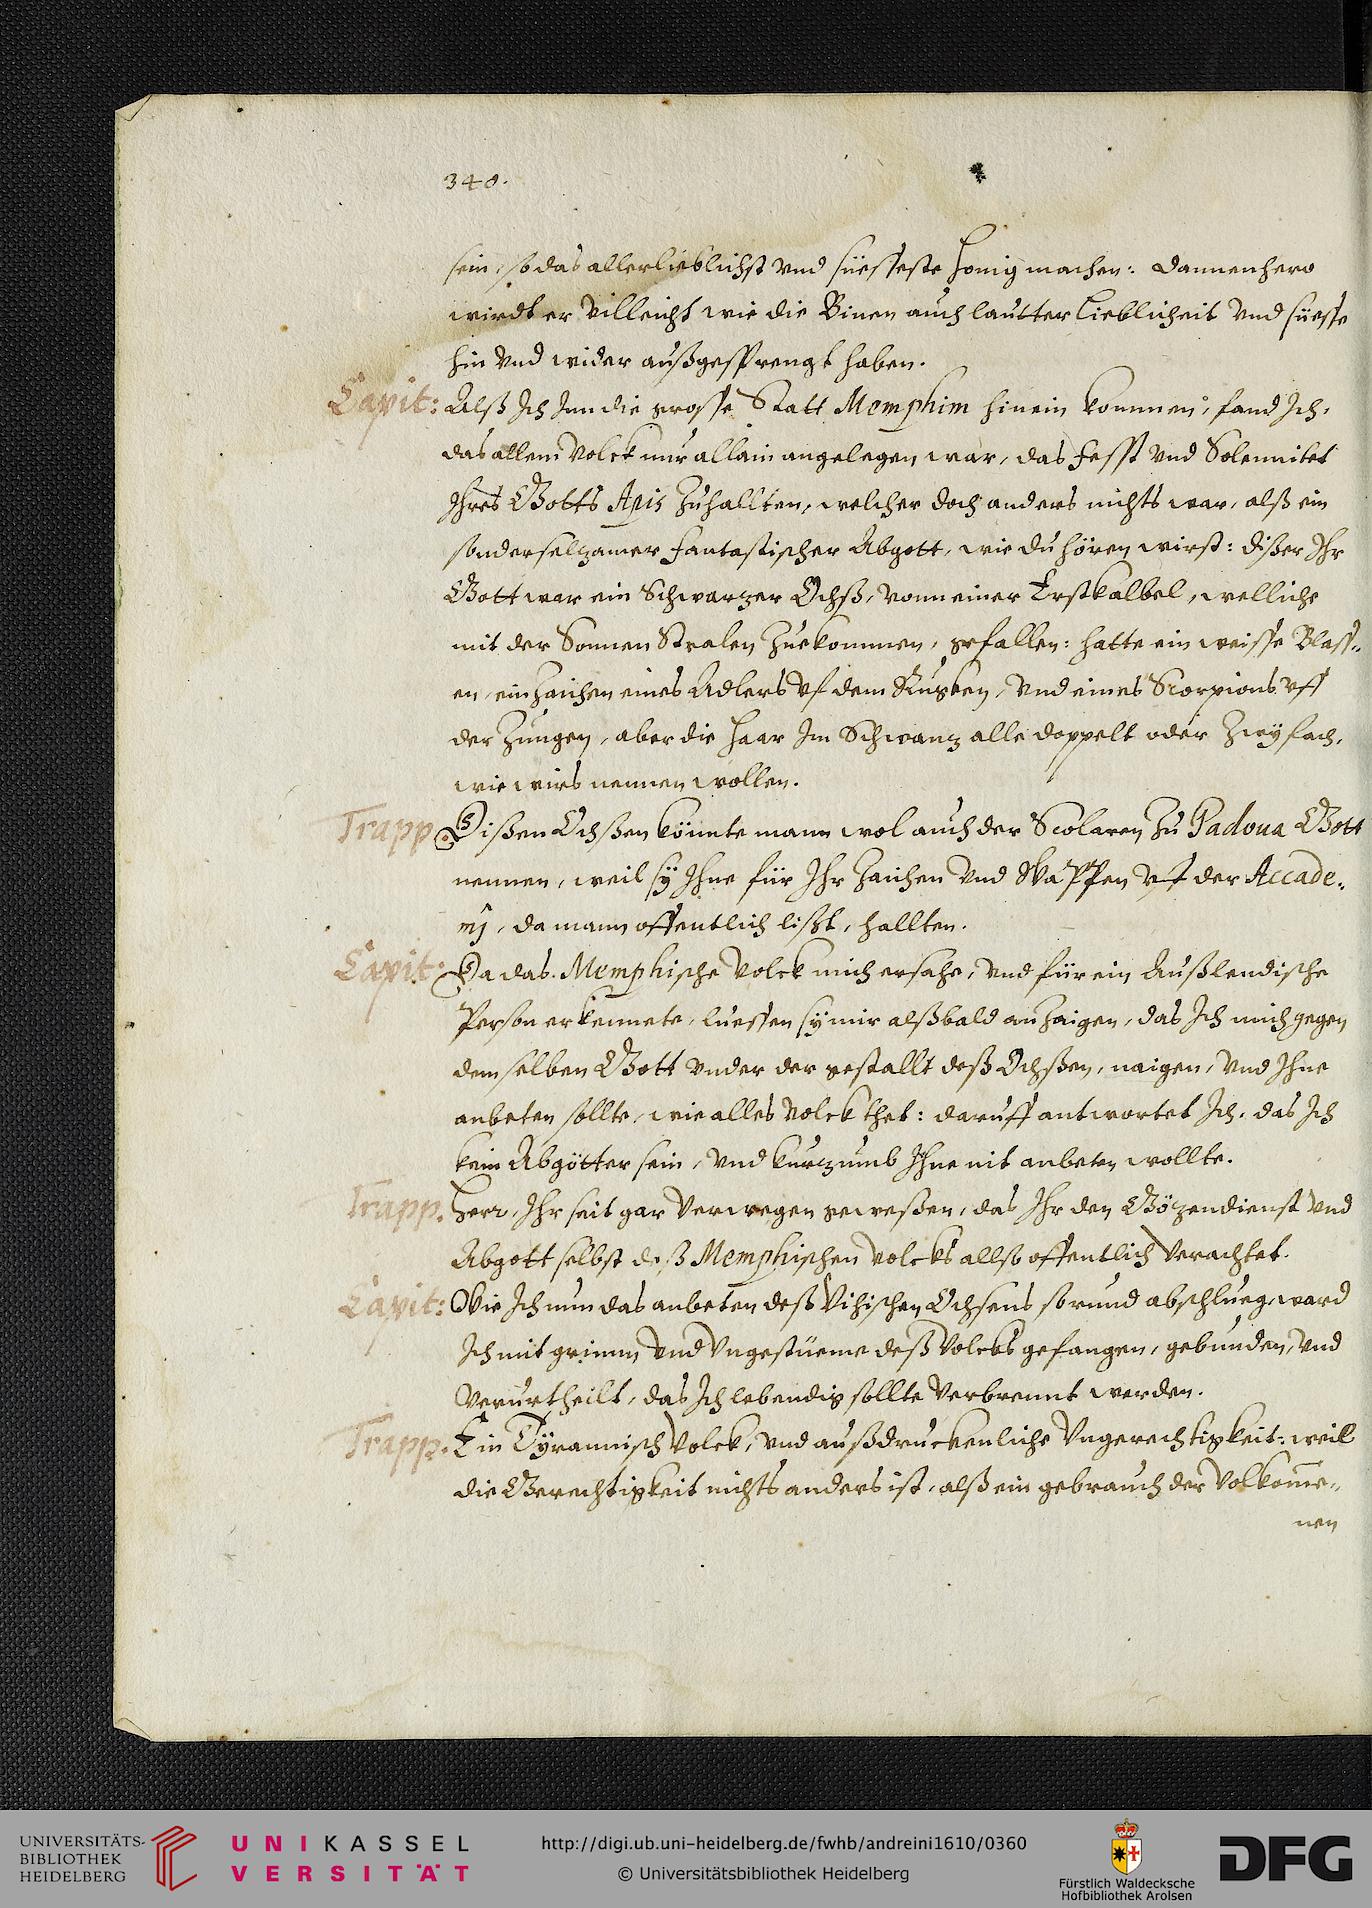 340.
sein, so das allerlieblichst vnd süesseste honig machen: dannenhero
wirdt er villeicht wie die Binen auch lautter Lieblicheit vnd süesse
hin vnd wider außgesprengt haben.
Capit: Alß Ich Inn die grosse Statt Memphim hinein kommen, fand Ich,
das allem Volck nur allain angelegen war, das Fesst vnd Solennitet
Ihres Gotts Apis zuhallten, welcher doch anders nichts war, alß ein
sonderselzamer fantastischer Abgott, wie du hören wirst: dißer Ihr
Gott war ein Schwarzer Ochß, vonn einer Erstkalbel, welliche
mit der Sonnen Stralen zuekommen, gefallen: hatte ein weisse Blass-
en, ein zaichen eines Adlers vf dem Rugken, vnd eines Scorpions vff
der Zungen, aber die haar Im Schwanz alle doppelt oder zwyfach,
wie wirs nennen wollen.
Trapp. Dißen Ochßen könnte mann wol auch der Scolaren zu Padoua Gott
nennen, weil sÿ Ihne für Ihr zaichen vnd Wappen vf der Accade-
mj, da mann offentlich lißt, hallten.
Capit: Da das Memphische Volck mich ersahe, vnd für ein Außlendische
Person erkennete, luessen sÿ mir alßbald anzaigen, das Ich mich gegen
demselben Gott vnder der gestallt deß Ochßen, naigen, vnd Ihne
anbeten sollte, wie alles Volck thet: daruff antwortet Ich, das Ich
kein Abgötter sein, vnd kurzumb Ihne nit anbeten wollte.
Trapp. Herr, Ihr seit gar verwegen geweßen, das Ihr den Gözendienst vnd
Abgott selbst deß Memphischen Volcks allso offentlich verachtet.
Capit: Wie Ich nun das anbeten deß Vihischen Ochsens so rund abschlueg, ward
Ich mit grimm vnd Vngestüeme deß Volcks gefangen, gebunden, vnd
verurtheilt, das Ich lebendig sollte verbrennt werden.
Trapp. Ein Tÿrannisch Volck, vnd außdruckenliche Vngerechtigkeit: weil
die Gerechtigkeit nichts anders ist, alß ein gebrauch der Volkom̄e-
nen
UNIVERSITÄTS-
BIBLIOTHEK
HEIDELBERG
UNIKASSEL
VERSITÄT
http://digi.ub.uni-heidelberg.de/fwhb/andreini1610/0360
© Universitätsbibliothek Heidelberg
Fürstlich Waldecksche
Hofbibliothek Arolsen
DFG